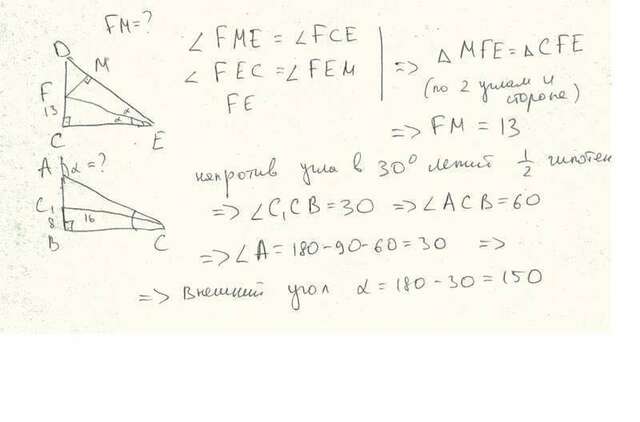 FM=?
D
M
F
13
α
α
C
E
∠ FME = ∠FCE
∠ FEC = ∠ FEM
FE
=> △ MFE = △ CFE
(по 2 углам и
стороне)
=> FM = 13
A
α = ?
C₁
8
16
B
C
напротив угла в 30° лежит 1/2 гипотен
=> ∠C₁CB = 30 => ∠ACB = 60
=> ∠A = 180-90-60 = 30 =>
=> Внешний угол α = 180 - 30 = 150